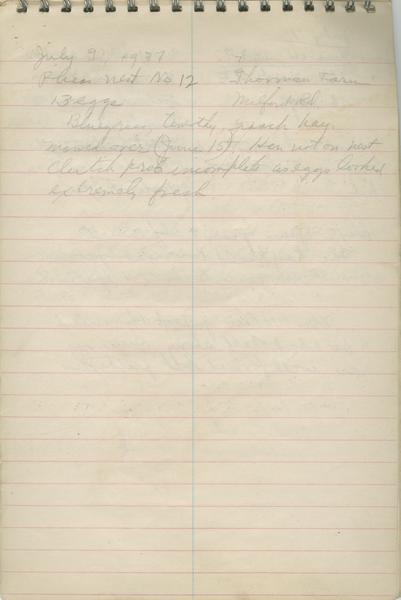 July 9, 1937 7
Pheas Nest No 12 Thorman Farm
13 eggs Milford Rd.
Bluegrass, Timothy, marsh hay.
mowed over (June 15). Hen not on nest
Clutch prob incomplete as eggs looked
extremely fresh